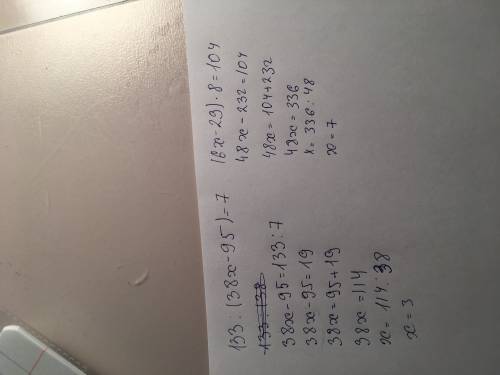 133:(38x-95)=7
133:(38
38x-95=133:7
38x-95=19
38x=95+19
38x=114
x=114:38
x=3
(6x-29)·8=104
48x-232=104
48x=104+232
48x=336
x=336:48
x=7